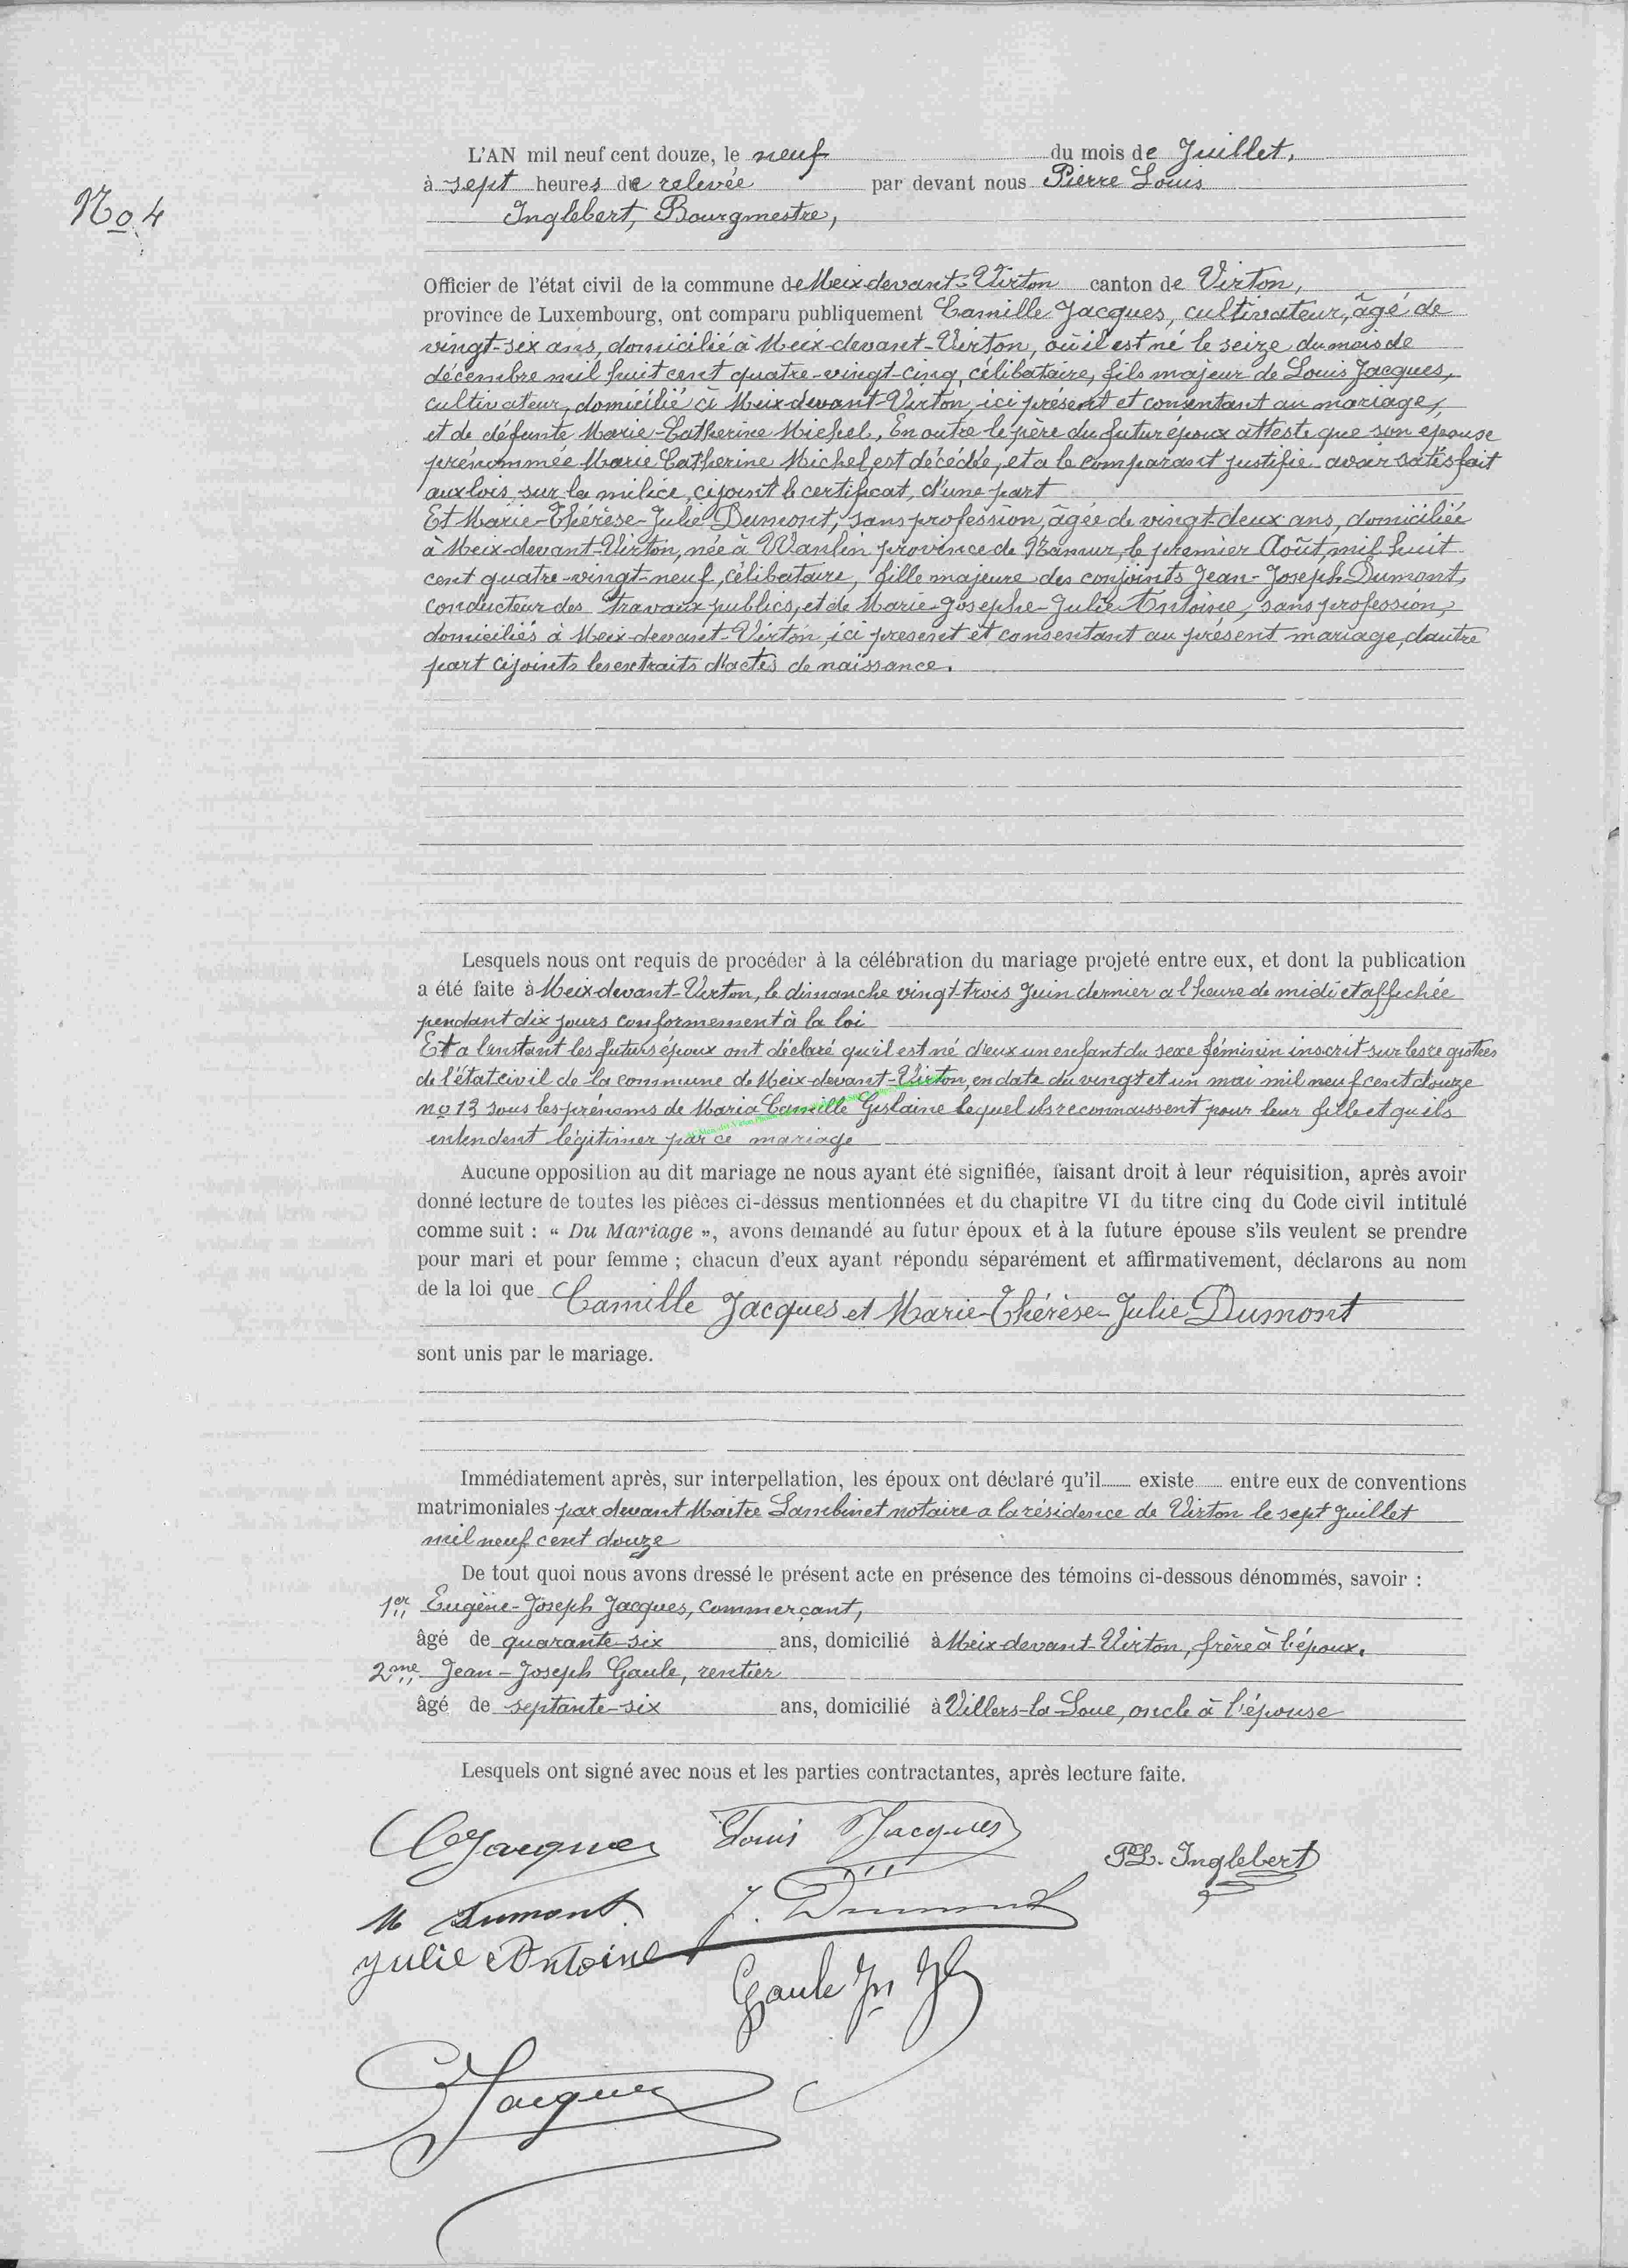 No 4
L'AN mil neuf cent douze, le neuf du mois de Juillet,
à sept heures de relevée par devant nous Pierre Louis
Inglebert, Bourgmestre,
Officier de l'état civil de la commune de Meix-devant-Virton canton de Virton,
province de Luxembourg, ont comparu publiquement Camille Jacques, cultivateur, âgé de
vingt-six ans, domicilié à Meix-devant-Virton, où il est né le seize du mois de
décembre mil huit cent quatre-vingt-cinq, célibataire, fils majeur de Louis Jacques,
cultivateur, domicilié à Meix-devant-Virton, ici présent et consentant au mariage,
et de défunte Marie-Catherine Michel, En outre le père du futur époux atteste que son épouse
prénommée Marie Catherine Michel est décédée, et a le comparant justifié avoir satisfait
aux lois sur la milice, cijoint le certificat, d'une part
Et Marie-Thérèse-Julie Dumont, sans profession, âgée de vingt-deux ans, domiciliée
à Meix-devant-Virton, née à Wanlin province de Namur, le premier Août mil huit
cent quatre-vingt-neuf, célibataire, fille majeure des conjoints Jean-Joseph Dumont,
conducteur des travaux publics, et de Marie-Josephe-Julie Antoine, sans profession,
domiciliés à Meix-devant-Virton, ici present et consentant au présent mariage, d'autre
part cijoints les extraits d'actes de naissance.
Lesquels nous ont requis de procéder à la célébration du mariage projeté entre eux, et dont la publication
a été faite à Meix-devant-Virton, le dimanche vingt-trois Juin dernier a l'heure de midi et affichée
pendant dix jours conformement à la loi
Et a l'instant les futurs époux ont déclaré qu'il est né d'eux un enfant du sexe féminin inscrit sur les registres
de l'état civil de la commune de Meix-devant-Virton, en date du vingt et un mai mil neuf cent douze
no 13 sous les prénoms de Maria Camille Gislaine lequel ils reconnaissent pour leur fille et qu'ils
entendent légitimer par ce mariage
Aucune opposition au dit mariage ne nous ayant été signifiée, faisant droit à leur réquisition, après avoir
donné lecture de toutes les pièces ci-dessus mentionnées et du chapitre VI du titre cinq du Code civil intitulé
comme suit : « Du Mariage », avons demandé au futur époux et à la future épouse s'ils veulent se prendre
pour mari et pour femme ; chacun d'eux ayant répondu séparément et affirmativement, déclarons au nom
de la loi que Camille Jacques et Marie-Thérèse-Julie Dumont
sont unis par le mariage.
Immédiatement après, sur interpellation, les époux ont déclaré qu'il existe entre eux de conventions
matrimoniales par devant Maitre Lambinet notaire a la résidence de Virton le sept Juillet
mil neuf cent douze
De tout quoi nous avons dressé le présent acte en présence des témoins ci-dessous dénommés, savoir :
1er Eugène-Joseph Jacques, commerçant,
âgé de quarante-six ans, domicilié à Meix-devant-Virton, frère à l'époux.
2me Jean-Joseph Gaule, rentier
âgé de septante-six ans, domicilié à Villers-la-Loue, oncle à l'épouse
Lesquels ont signé avec nous et les parties contractantes, après lecture faite.
CJacques Louis Jacques
PL. Inglebert
M Dumont J. Dumont
Julie Antoine
Gaule Jn Jh
Jacques